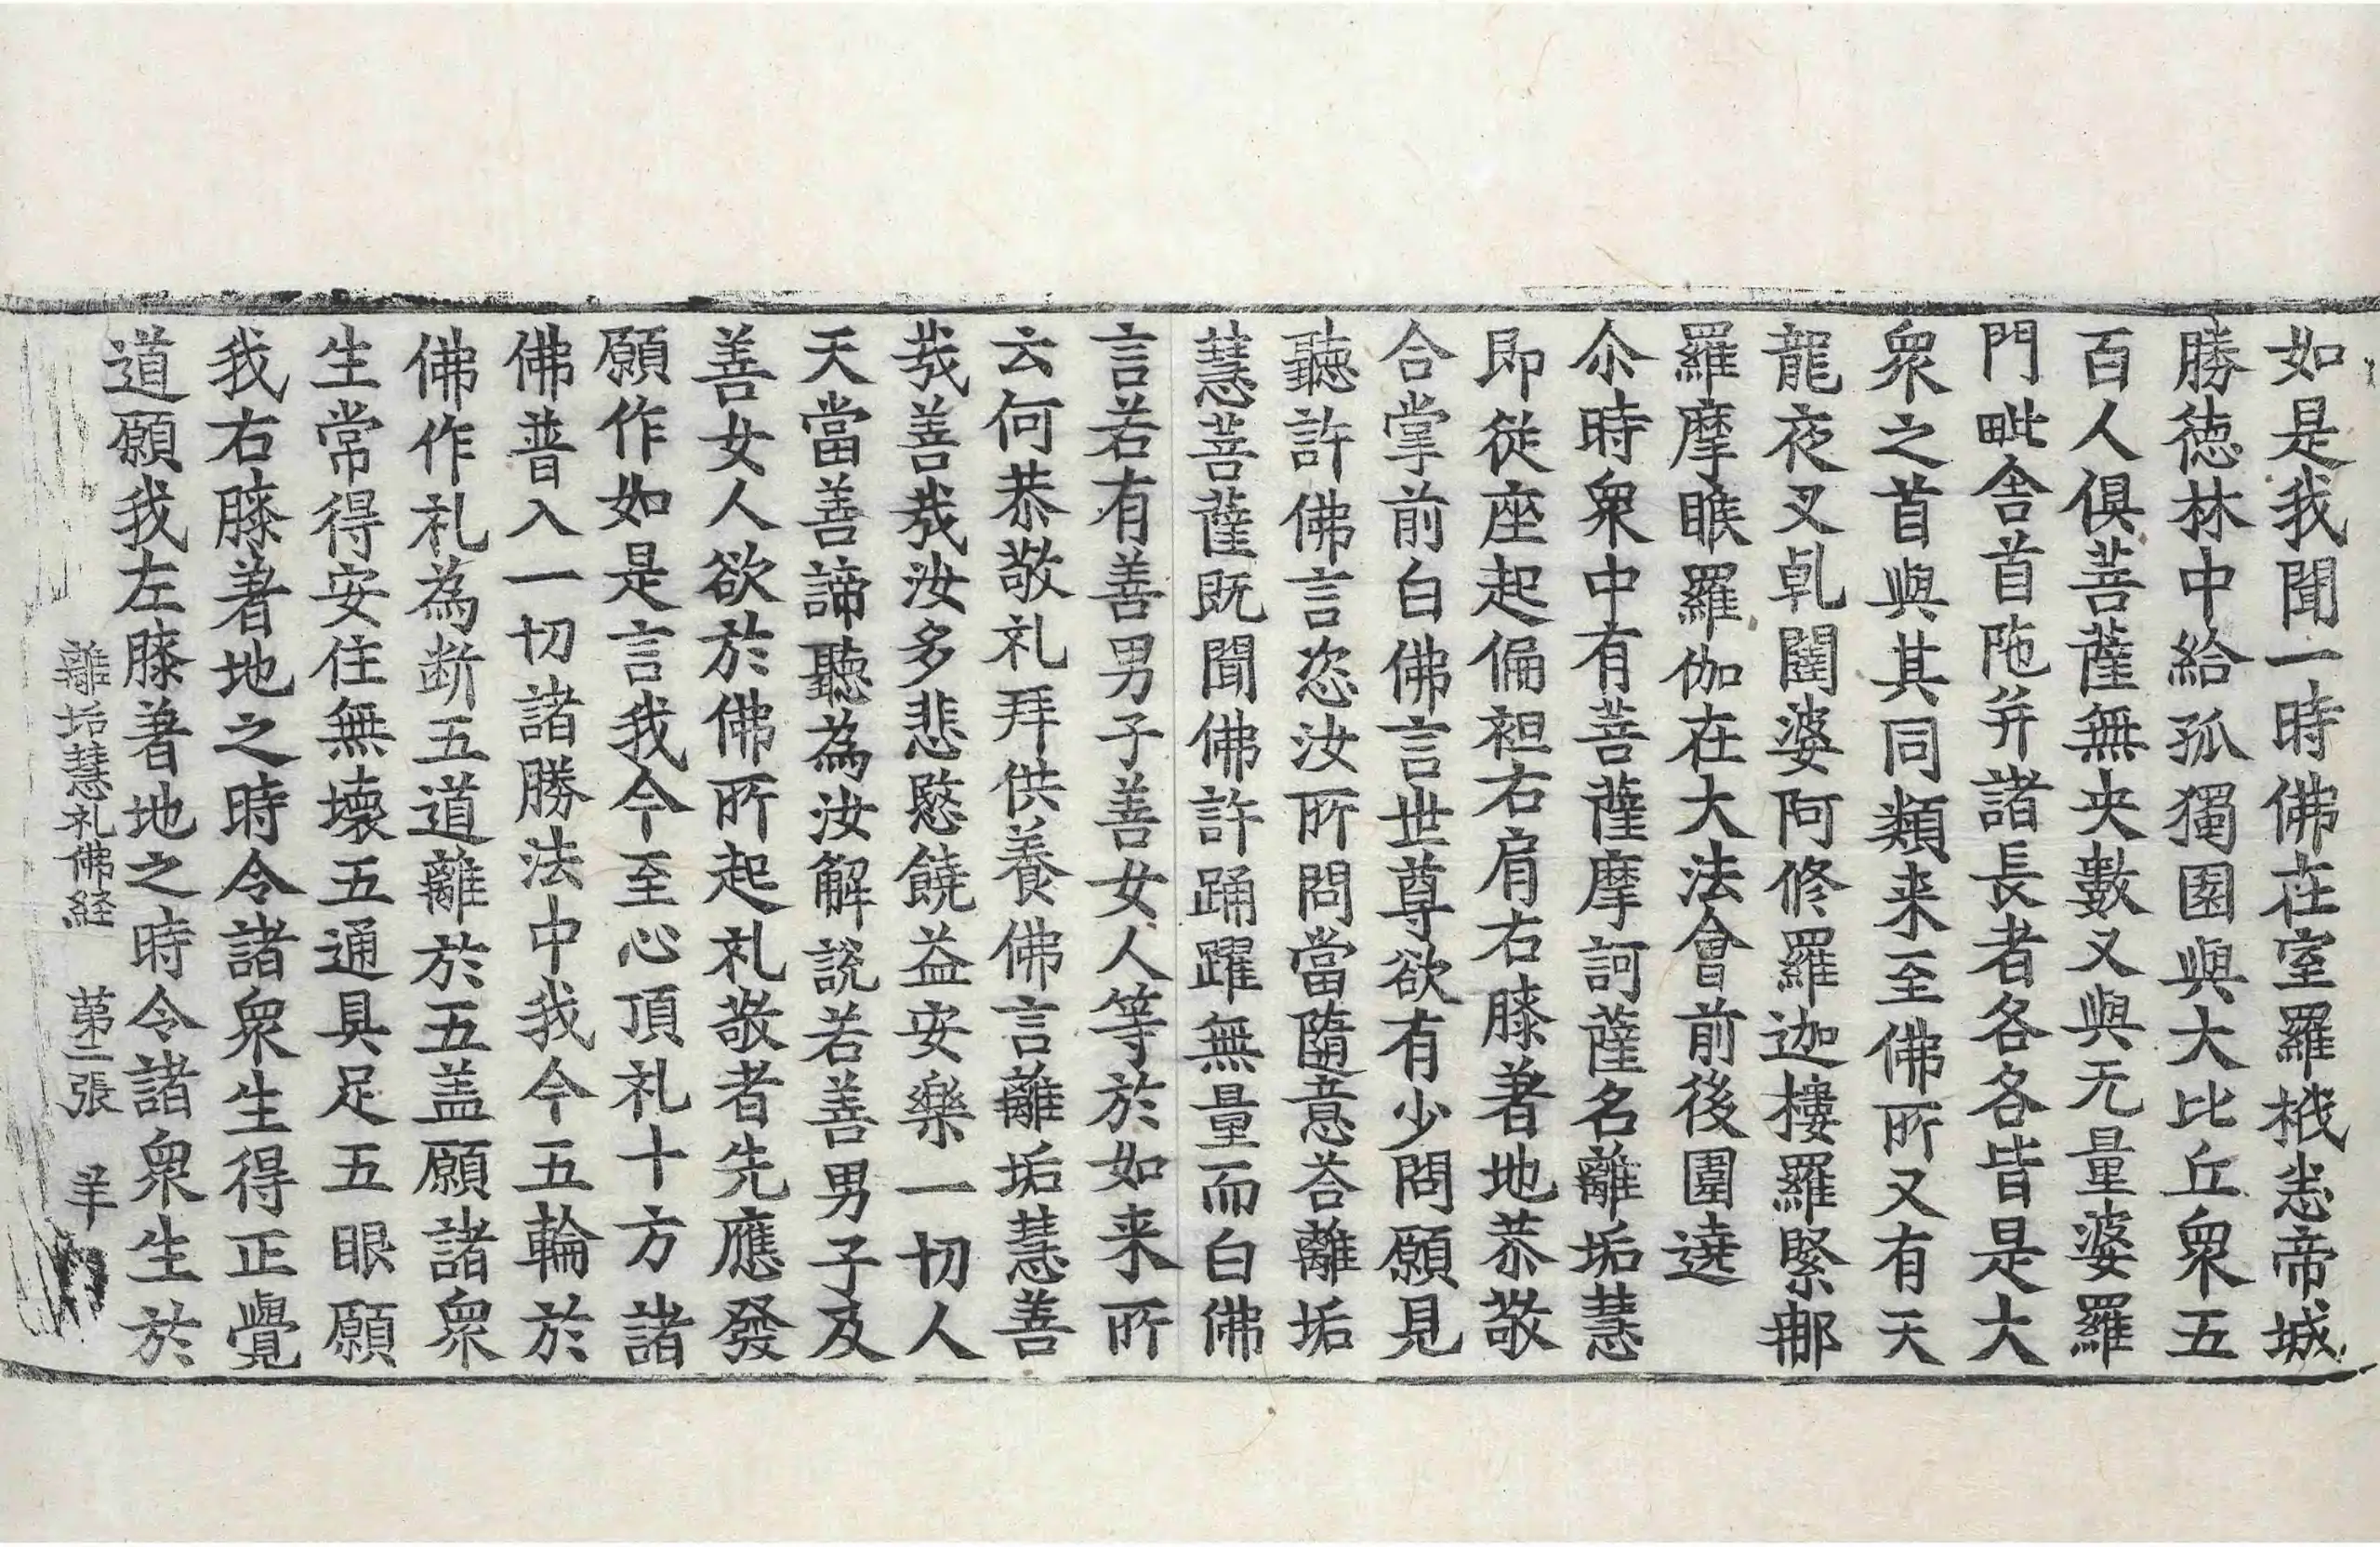 如是我聞一時佛在室羅筏悉帝城
勝德林中給孤獨園與大比丘衆五
百人俱菩薩無央數又與无量婆羅
門毗舍首陁并諸長者各各皆是大
衆之首與其同類来至佛所又有天
龍夜叉乹闥婆阿修羅迦樓羅緊那
羅摩睺羅伽在大法會前後圍遶
尒時衆中有菩薩摩訶薩名離垢慧
即從座起偏袒右肩右膝著地恭敬
合掌前白佛言世尊欲有少問願見
聽許佛言恣汝所問當隨意荅離垢
慧菩薩既聞佛許踊躍無量而白佛
言若有善男子善女人等於如来所
云何恭敬礼拜供養佛言離垢慧善
㢤善㢤汝多悲愍饒益安樂一切人
天當善諦聽為汝解說若善男子及
善女人欲於佛所起礼敬者先應發
願作如是言我今至心頂礼十方諸
佛普入一切諸勝法中我今五輪於
佛作礼為断五道離於五盖願諸衆
生常得安住無壞五通具足五眼願
我右膝著地之時令諸衆生得正覺
道願我左膝著地之時令諸衆生於
離垢慧礼佛経　苐二張　羊